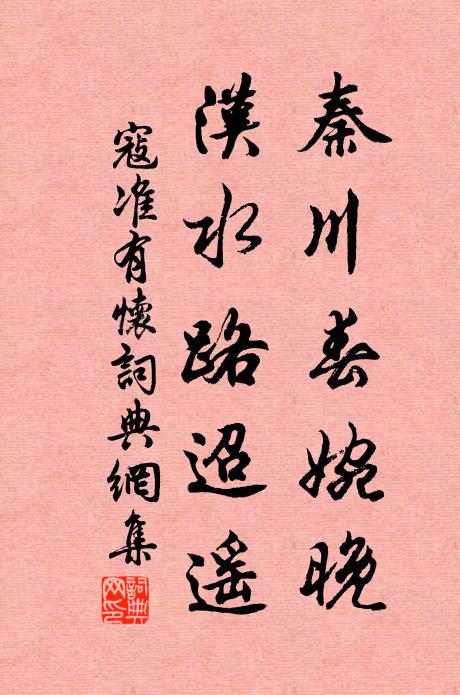 秦川春婉晚
漢水路迢遥
寇准有懷詞典網集
詞典网印